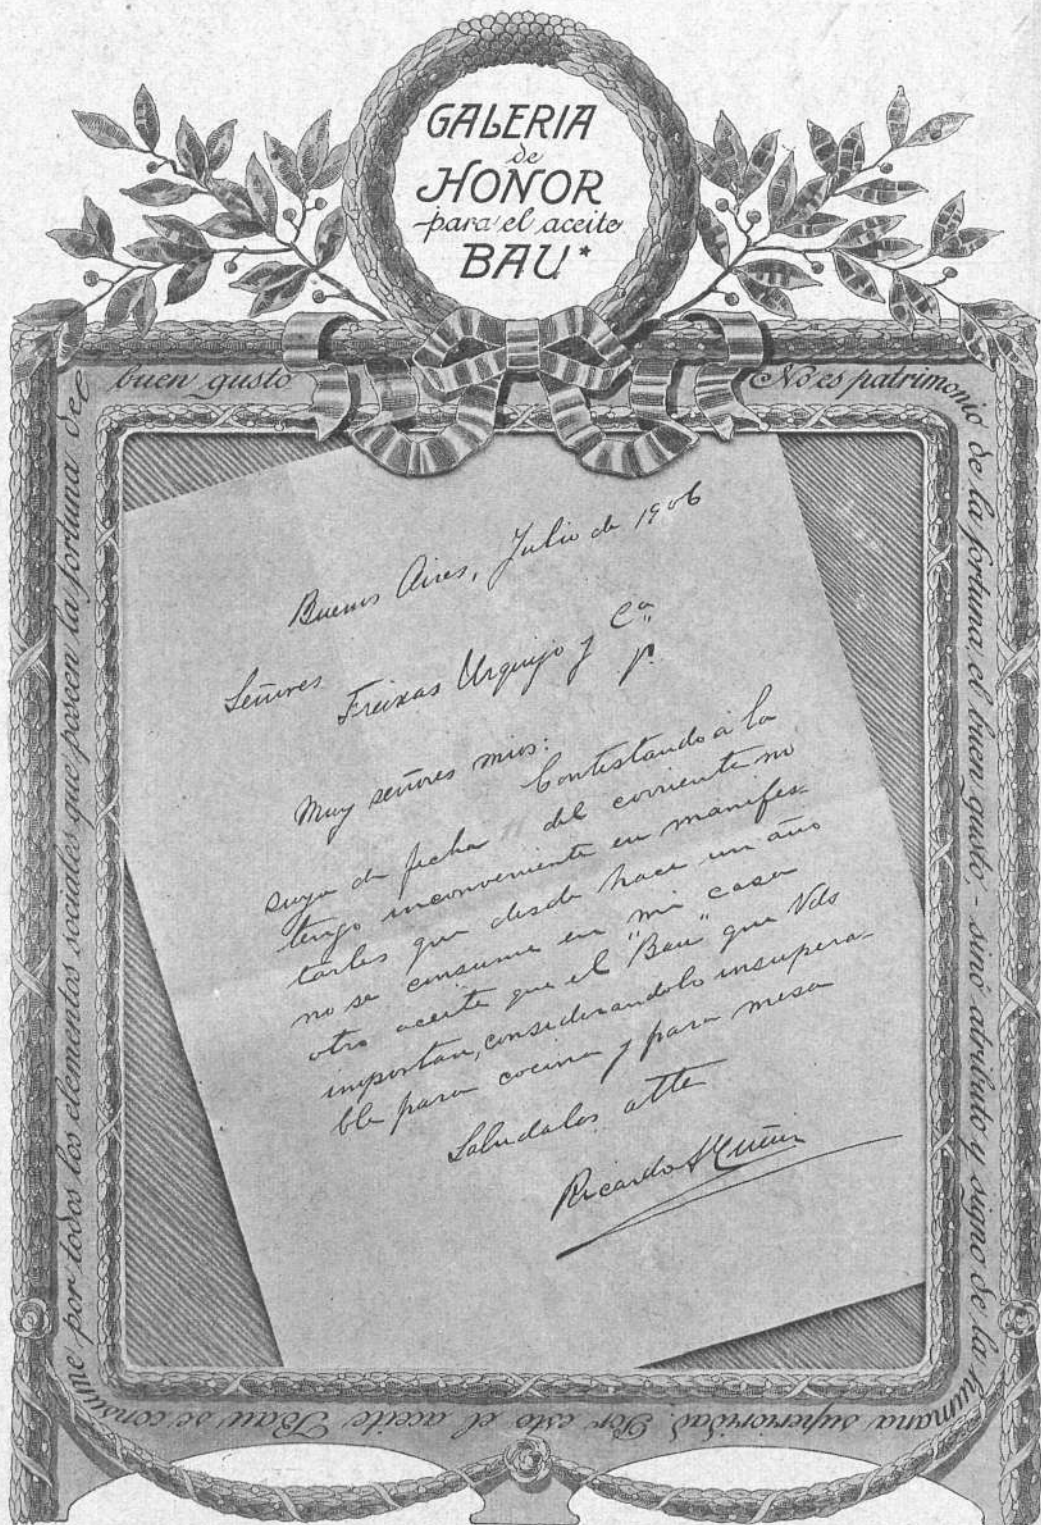 GALERIA
de
HONOR
para el aceite
BAU*
No es patrimonio de la fortuna, el buen gusto, - sinó atributo y signo de la humana superioridad. Por esto el aceite Bau se consume por todos los elementos sociales que poseen la fortuna del buen gusto
Buenos Aires, Julio de 1906
Señores
Freixas Urquijo y Cª
Muy señores mios:
Contestando á la
suya de fecha 11 del corriente no
tengo inconveniente en manifes-
tarles que desde hace un año
no se consume en mi casa
otro aceite que el "Bau" que Vds
importan, considerandolo insupera-
ble para cocina y para mesa
Saludalos atte
Ricardo